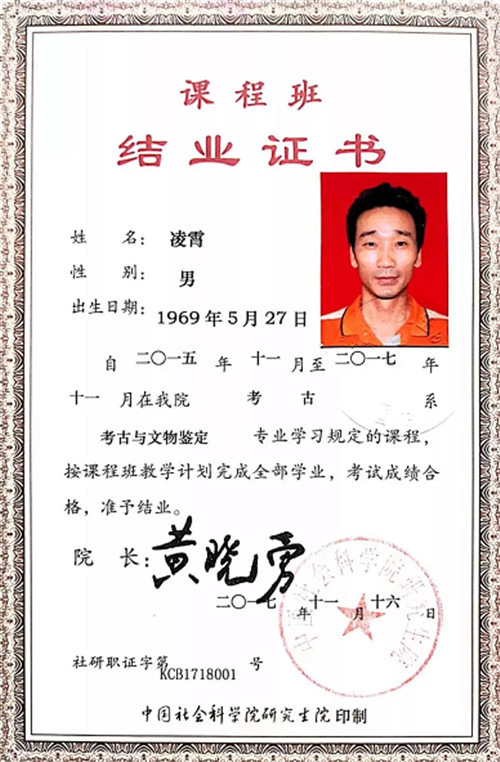 课程班
结业证书
姓 名：凌霄
性 别：男
出生日期：1969年5月27日
自二〇一五年十一月至二〇一七年
十一月在我院 考古 系
考古与文物鉴定 专业学习规定的课程，
按课程班教学计划完成全部学业，考试成绩合
格，准予结业。
院 长：黄晓勇
二〇一七年十一月十六日
中国社会科学院研究生院
社研职证字第KCB1718001号
中国社会科学院研究生院印制